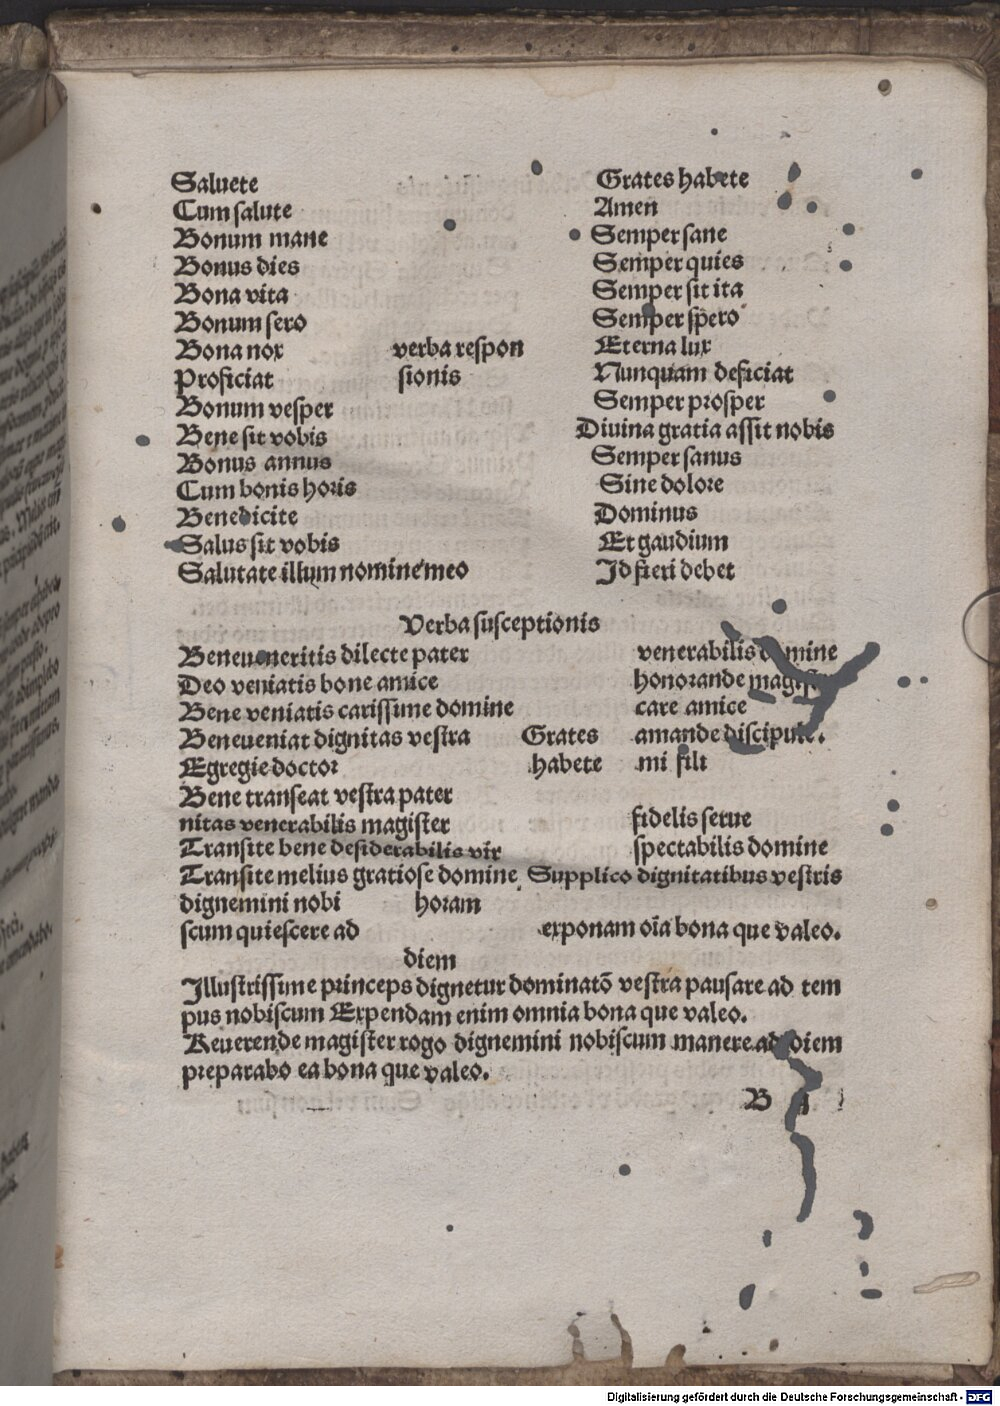 Saluete Grates habete
Cum salute Amen
Bonum mane Semper sane
Bonus dies Semper quies
Bona vita Semper sit ita
Bonum sero Semper spero
Bona nox verba respon Eterna lux
Proficiat sionis Nunquam deficiat
Bonum vesper Semper prosper
Bene sit vobis Diuina gratia assit nobis
Bonus annus Semper sanus
Cum bonis horis Sine dolore
Benedicite Dominus
Salus sit vobis Et gaudium
Salutate illum nomine meo Id fieri debet
Verba susceptionis
Beneueneritis dilecte pater venerabilis domine
Deo veniatis bone amice honorande
Bene veniatis carissime domine care amice
Beneueniat dignitas vestra Grates amande discipule.
Egregie doctor habete mi fili
Bene transeat vestra pater
nitas venerabilis magister fidelis serue
Transite bene desiderabilis vir spectabilis domine
Transite melius gratiose domine Supplico dignitatibus vestris
dignemini nobi horam
scum quiescere ad exponam oīa bona que valeo.
diem
Illustrissime princeps dignetur dominatō vestra pausare ad tem
pus nobiscum Expendam enim omnia bona que valeo.
Reuerende magister rogo dignemini nobiscum manere ad diem
preparabo ea bona que valeo.
B
Digitalisierung gefördert durch die Deutsche Forschungsgemeinschaft - DFG